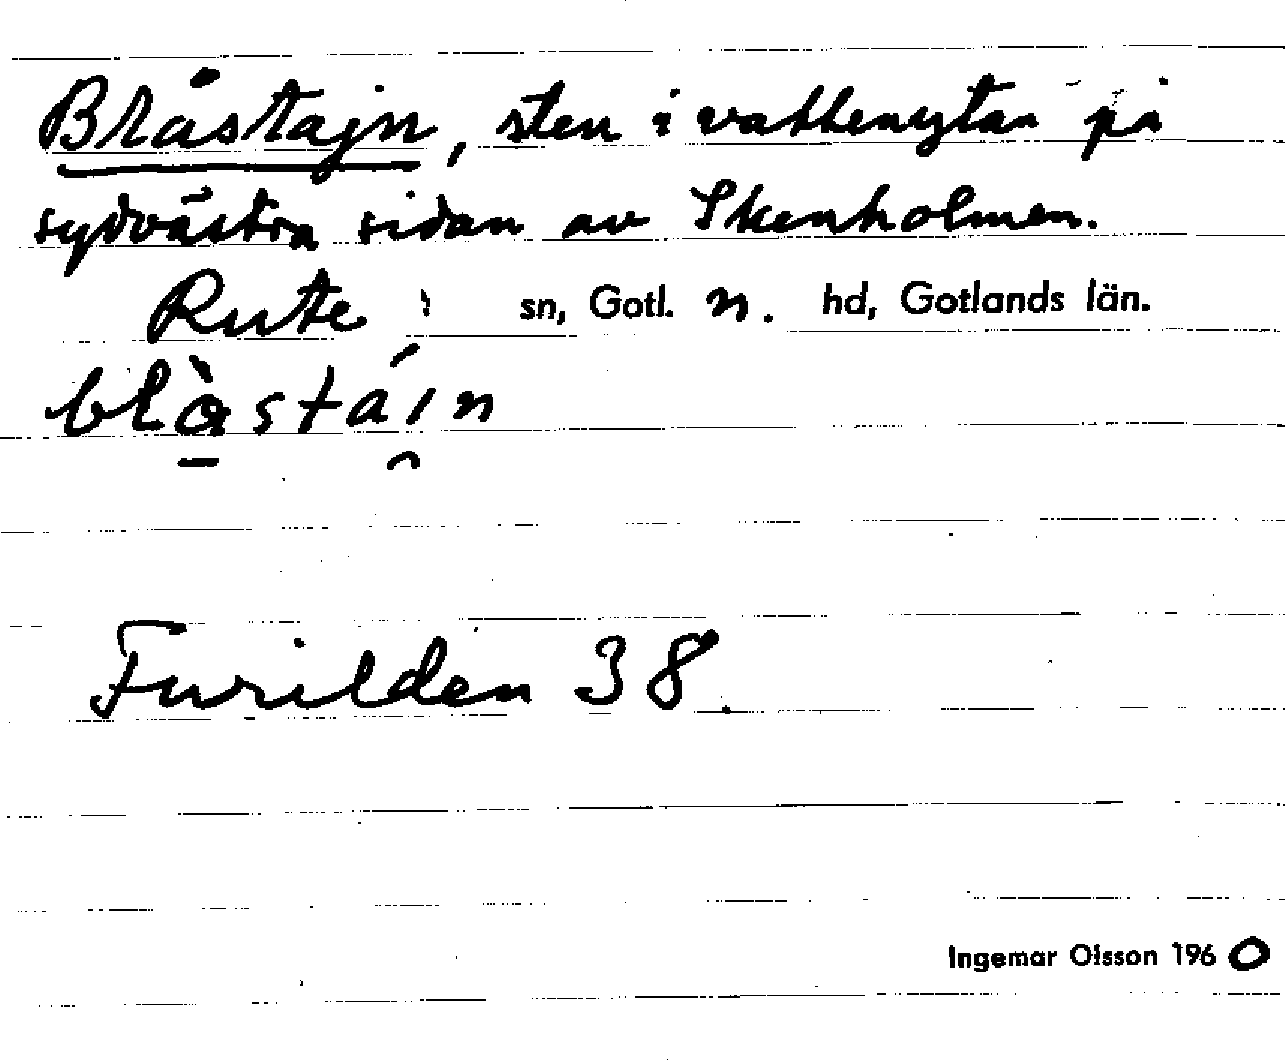 Blåstajn, sten i vattenytan på
sydvästra sidan av Skenholmen.
Rute sn, Gotl. n. hd, Gotlands län.
blà̱stáı̯n
Furilden 38.
Ingemar Olsson 1960